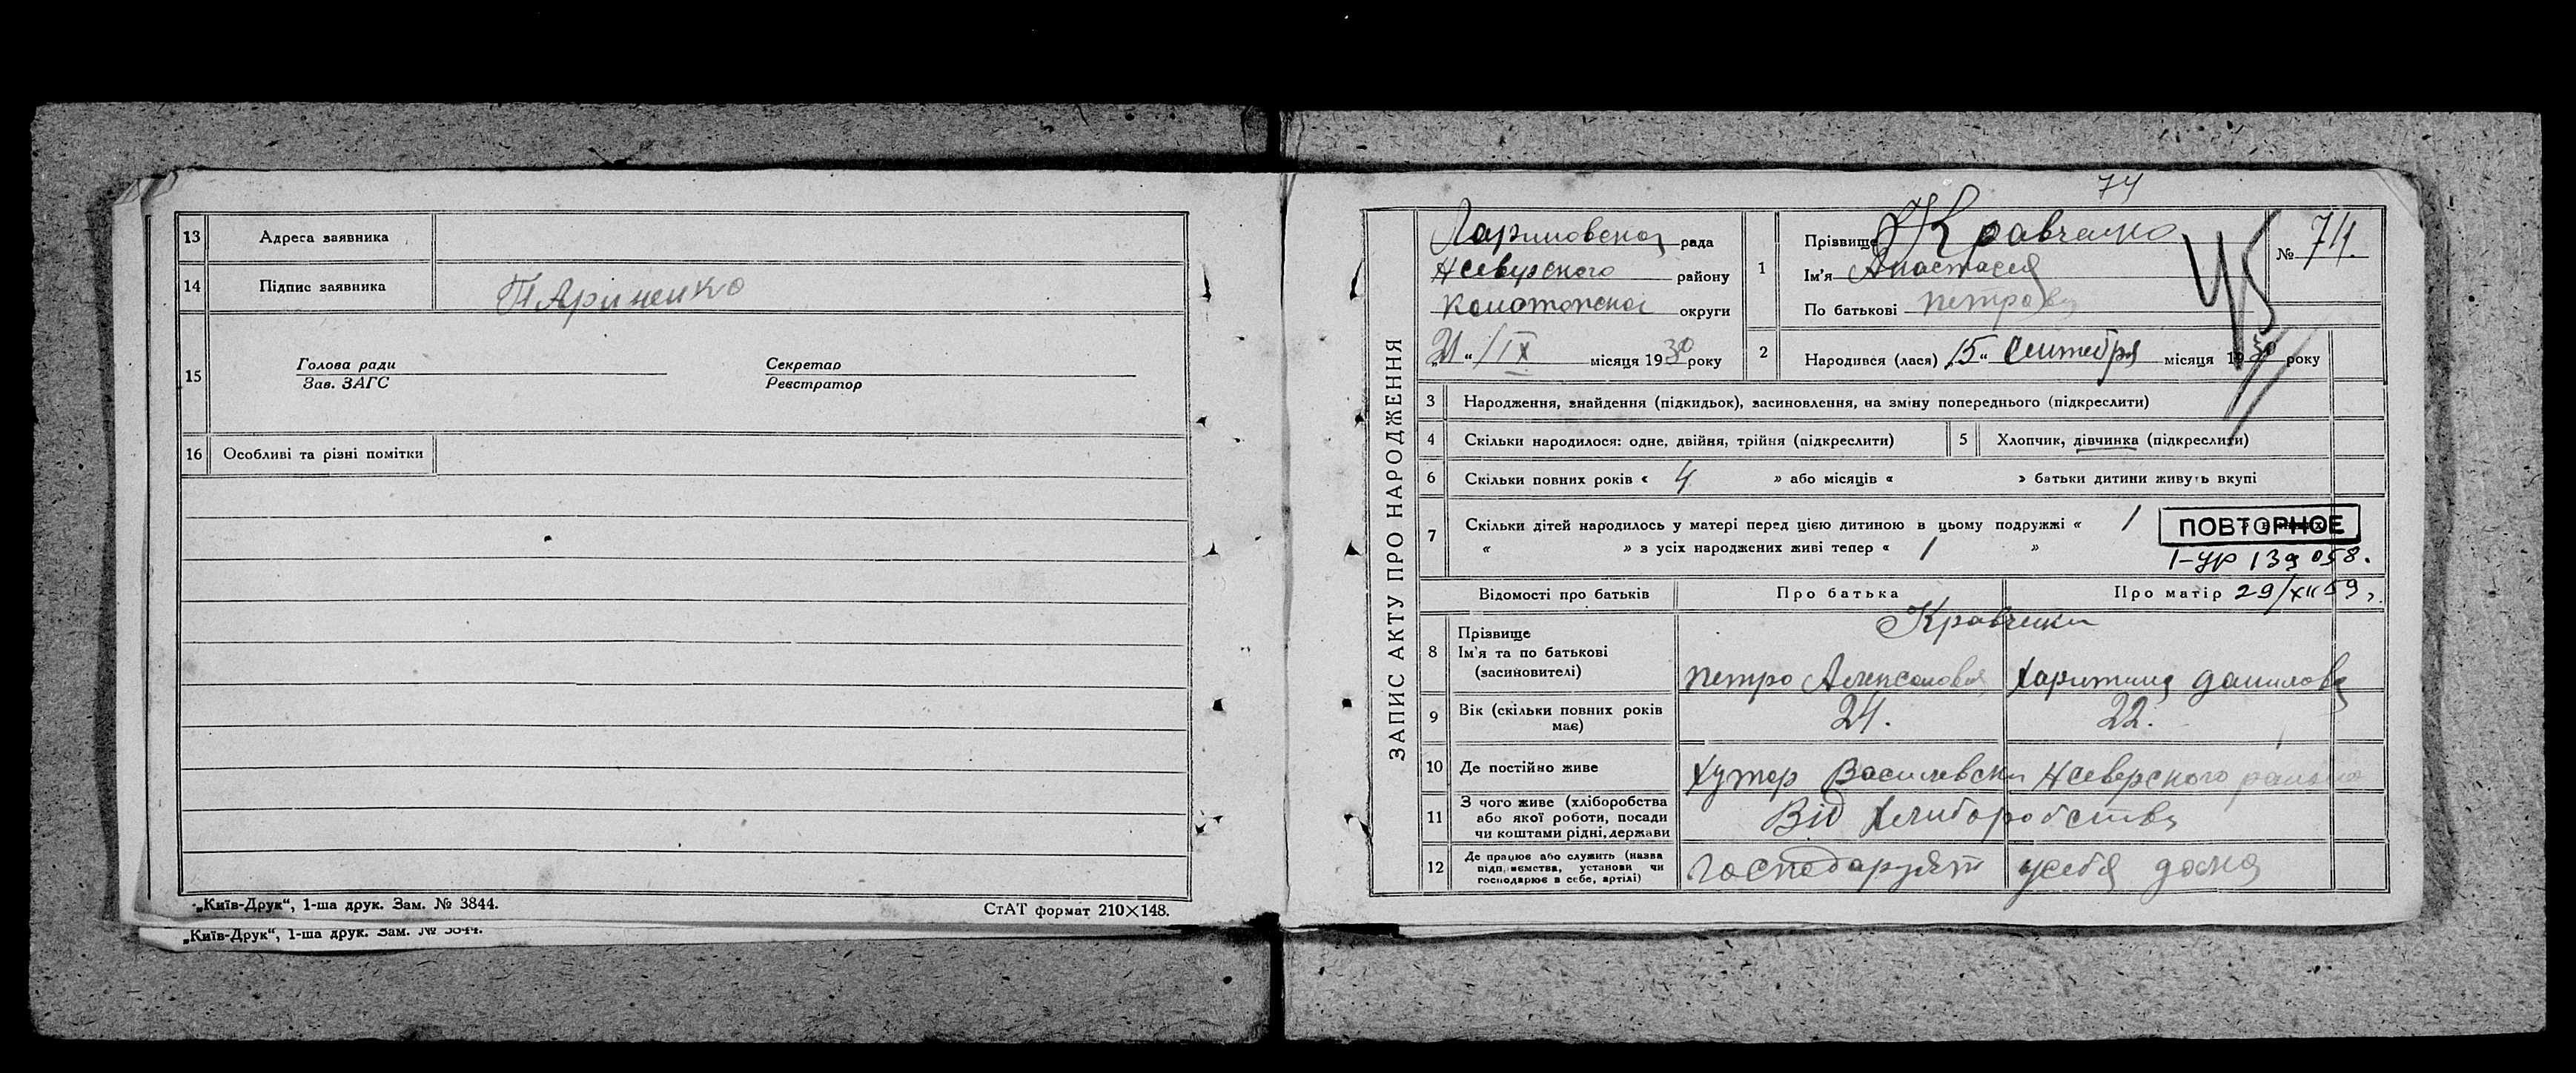 13 Адреса заявника
14 Підпис заявника
15 Голова ради Секретар
Зав. ЗАГС Реєстратор
16 Особливі та різні помітки
„Київ-Друк“, 1-ша друк. Зам. № 3844. СтАТ формат 210×148.
„Київ-Друк“, 1-ша друк. Зам. № 3844.
74
ЗАПИС АКТУ ПРО НАРОДЖЕННЯ
рада
Нсеверского району
округи
21 " / IX місяця 1930 року
1 Прізвище Кравченко
Ім'я Анастасея
По батькові петрова
№ 74.
2 Народився (лася) „15“ Сентебря місяця 1930 року
3 Народження, знайдення (підкидьок), засиновлення, на зміну попереднього (підкреслити)
4 Скільки народилося: одне, двійня, трійня (підкреслити) 5 Хлопчик, дівчинка (підкреслити)
6 Скільки повних років « 4 » або місяців « » батьки дитини живуть вкупі
7 Скільки дітей народилось у матері перед цією дитиною в цьому подружжі « 1
« » з усіх народжених живі тепер « 1 »
ПОВТОРНОЕ
1-УР 139058.
29/XII 59
Відомості про батьків Про батька Про матір
8 Прізвище
Ім'я та по батькові
(засиновителі)
Кравченки
петро Харитина данилова
9 Вік (скільки повних років
має)
24. 22.
10 Де постійно живе Хутор Василевски Нсеверского района
11 З чого живе (хліборобства
або якої роботи, посади
чи коштами рідні, держави
Від хлиборобства
12 Де працює або служить (назва
підприємства, установи чи
господарює в себе, артілі)
господарует усебя дома